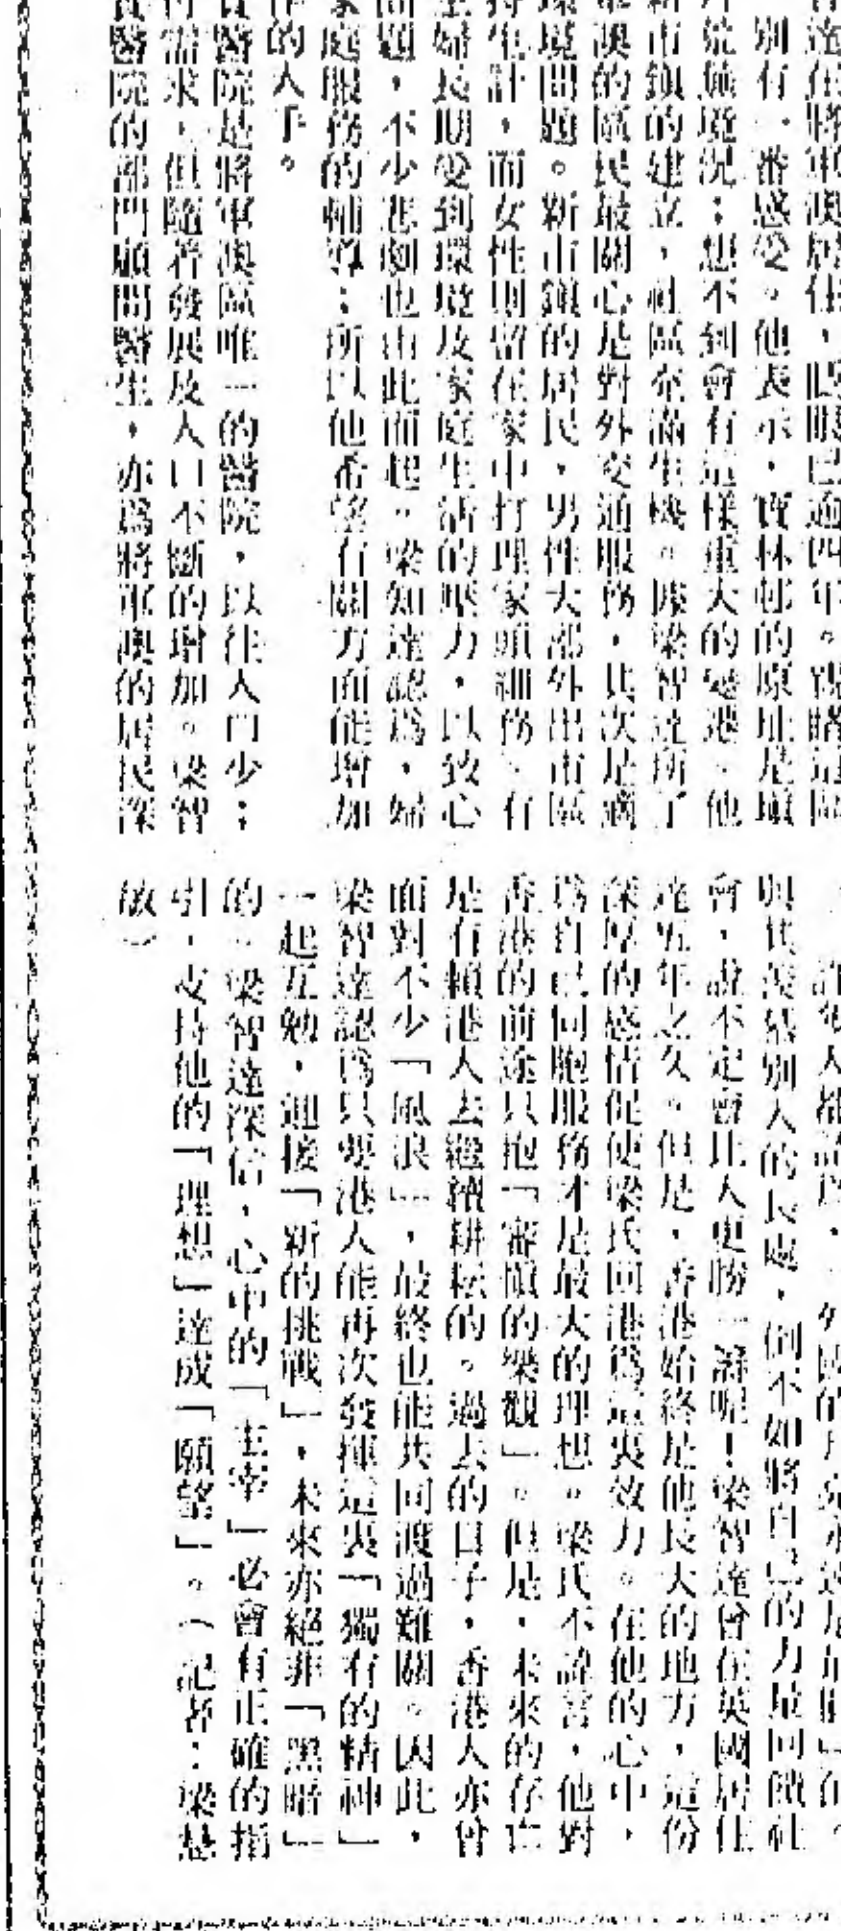 智達在將軍澳居住，眨眼已過四年。親睹這區
別有一番感受。他表示，寶林邨的原址是填
想不到會有這樣重大的變遷。他
新市鎮的建立，社區充滿生機。據梁智達所了
軍澳的區民最關心是對外交通服務，其次是適
環境問題。新市鎮的居民，男性大都外出市區
持生計，而女性則留在家中打理家頭細務。有
婦長期受到環境及家庭生活的壓力，以致心
問題，不少悲劇也由此而起。梁知達認爲，婦
家庭服務的輔導；所以他希望有關方面能增加
作的人手。
醫院是將軍澳區唯一的醫院，以往人口少；
需求，但隨着發展及人口不斷的增加。梁智
醫院的部門顧問醫生，亦爲將軍澳的居民深
許多人都認爲，「外國的月亮永遠是最圓」的。
與其羨慕別人的長處，倒不如將自己的力量回饋社
會，說不定會比人更勝一籌呢！梁智達曾在英國居住
達五年之久。但是，香港始終是他長大的地方，這份
深厚的感情促使梁氏回港爲這裏效力。在他的心中，
爲自己同胞服務才是最大的理想。梁氏不諱言，他對
香港的前途只抱「審愼的樂觀」。但是，未來的存亡
是有賴港人去繼續耕耘的。過去的日子，香港人亦曾
面對不少「風浪」，最終也能共同渡過難關。因此，
梁智達認爲只要港人能再次發揮這裏「獨有的精神」
一起互勉，迎接「新的挑戰」，未來亦絕非「黑暗」
的。梁智達深信，心中的「主宰」必會有正確的指
引，支持他的「理想」達成「願望」。（記者：梁慧
敏）